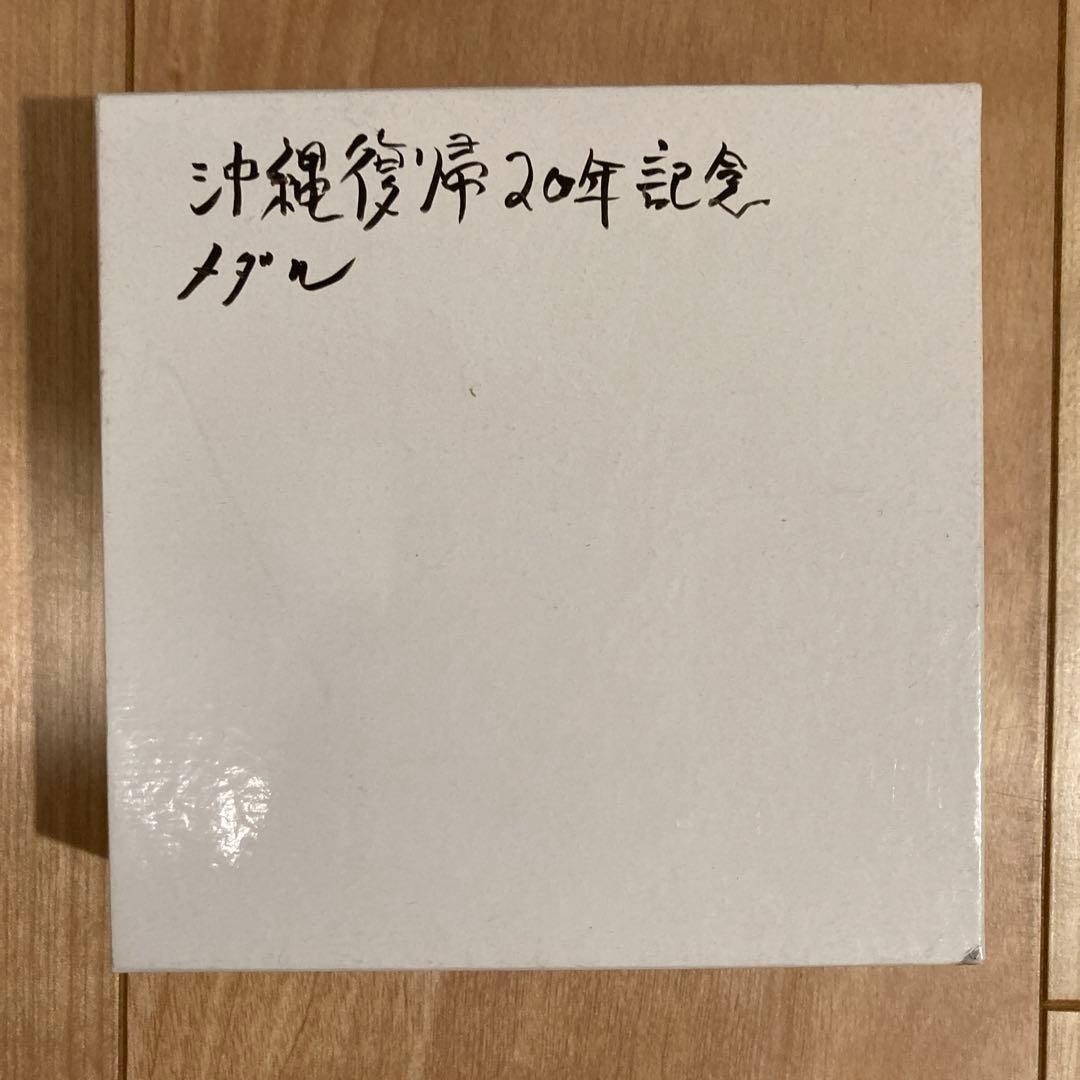 沖縄復帰20年記念
メダル